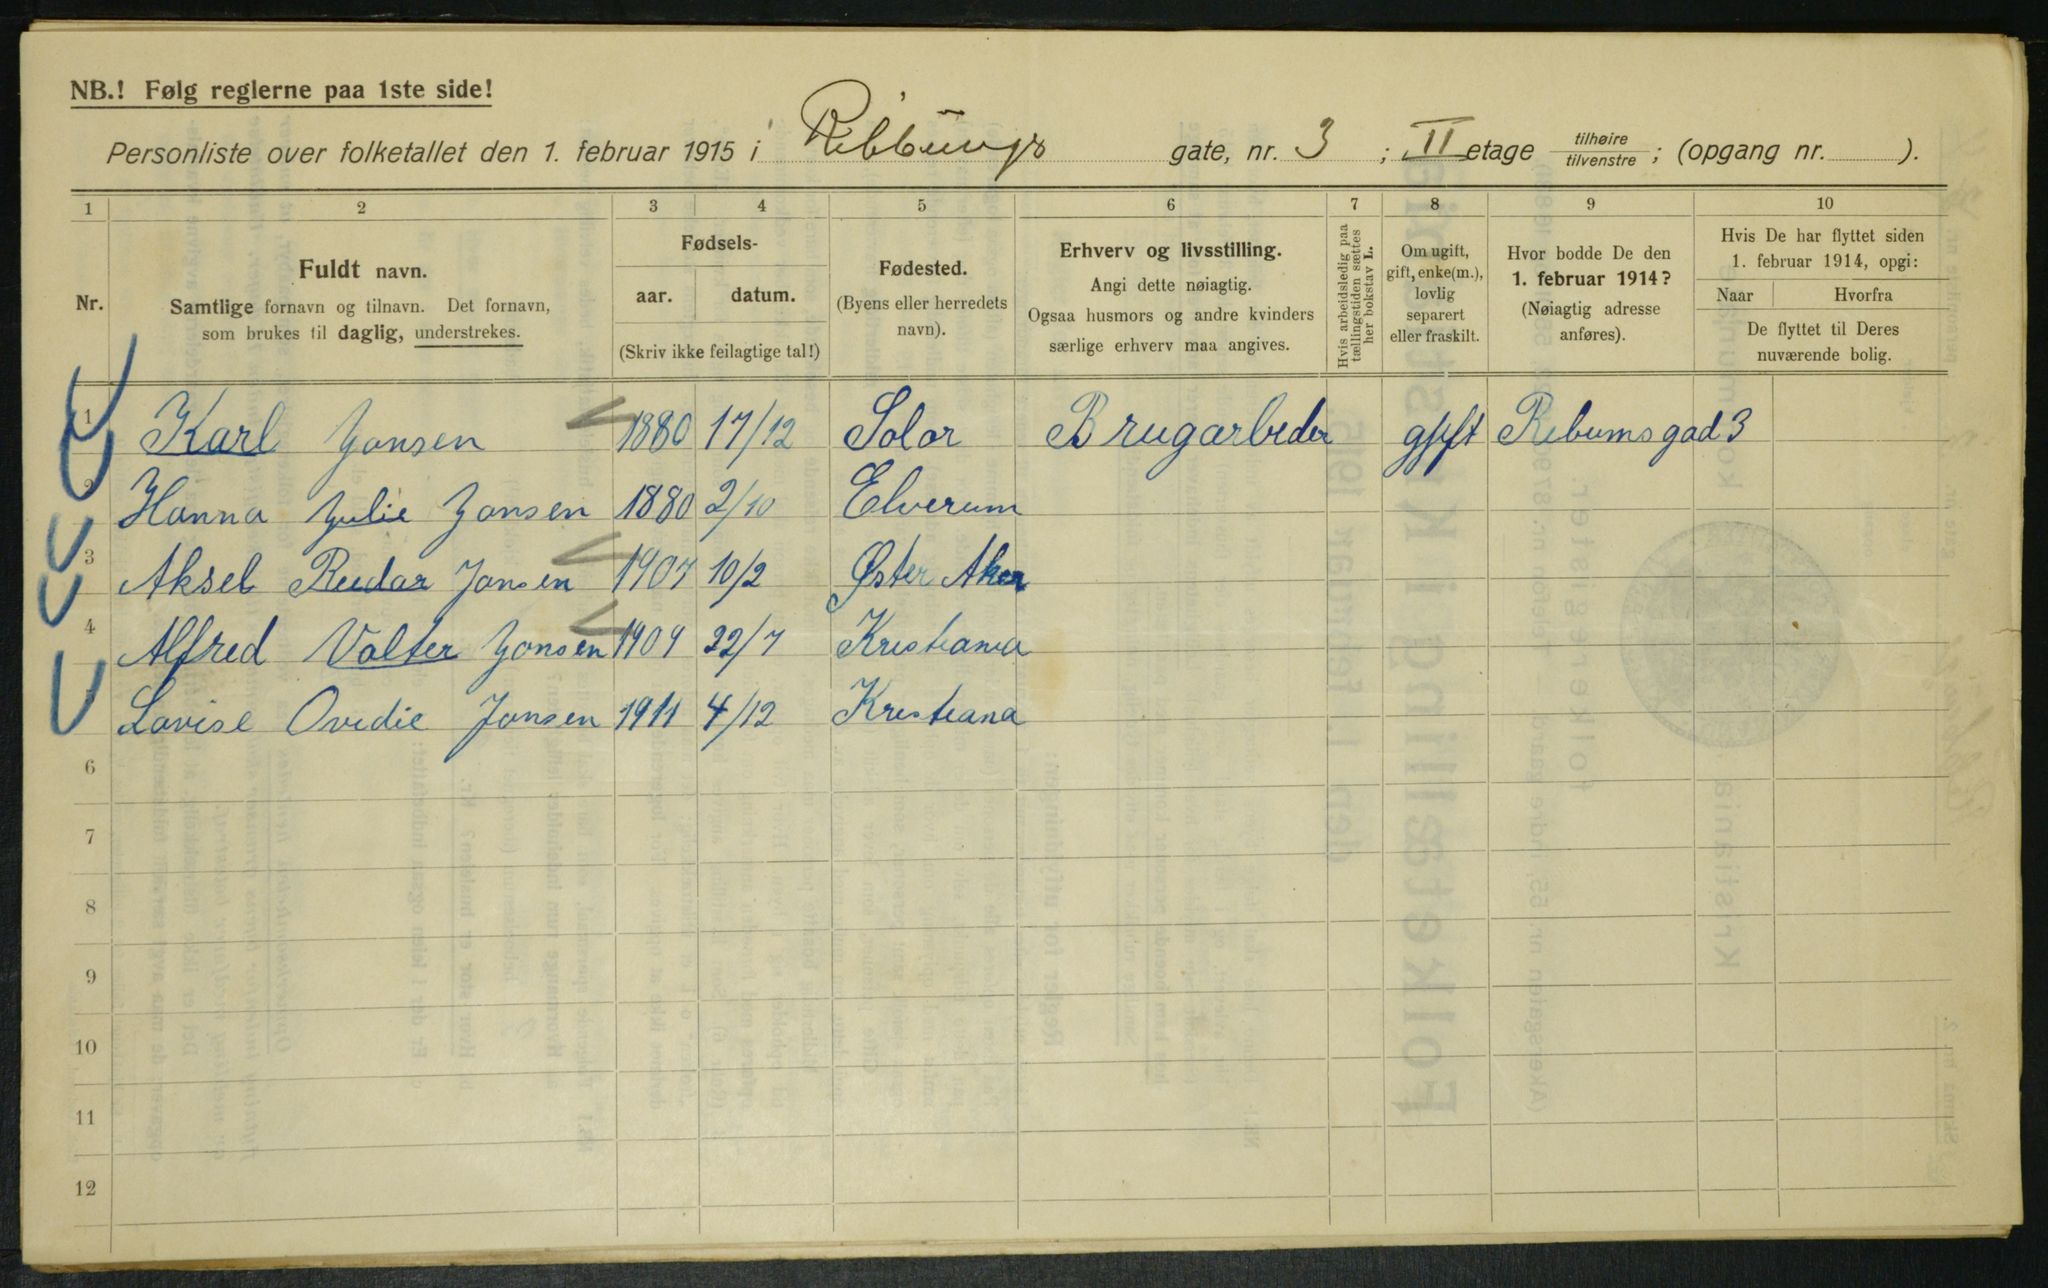 NB.! Følg reglerne paa 1ste side!
Personliste over folketallet den 1. februar 1915 i Ribbungs gate, nr. 3 ; II etage tilhøire tilvenstre ; (opgang nr. ).
1 2 3 4 5 6 7 8 9 10
Nr.
Fuldt navn.
Samtlige fornavn og tilnavn. Det fornavn,
som brukes til daglig, understrekes.
Fødsels-
aar. datum.
(Skriv ikke feilagtige tal!)
Fødested.
(Byens eller herredets
navn).
Erhverv og livsstilling.
Angi dette nøiagtig.
Ogsaa husmors og andre kvinders
særlige erhverv maa angives.
Hvis arbeidsledig paa
tællingstiden sættes
her bokstav L.
Om ugift,
gift, enke(m.),
lovlig
separert
eller fraskilt.
Hvor bodde De den
1. februar 1914?
(Nøiagtig adresse
anføres).
Hvis De har flyttet siden
1. februar 1914, opgi:
Naar Hvorfra
De flyttet til Deres
nuværende bolig.
1 Karl Jonsen 1880 17/12 Solør Brugarbeder gift Rebumsgad 3
2 Hanna Julie Jonsen 1880 2/10 Elverum
3 Aksel Reidar Jonsen 1907 10/2 Øster Aker
4 Alfred Valter Jonsen 1909 22/7 Kristiania
5 Lovise Ovidie Jonsen 1911 4/12 Kristiana
6
7
8
9
10
11
12